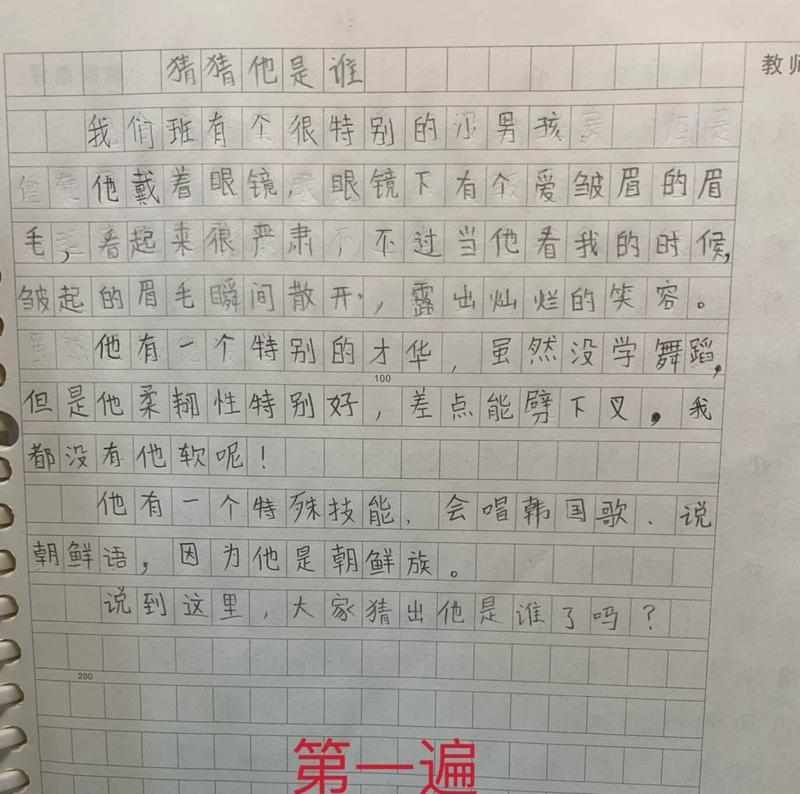 教师
猜猜他是谁
我们班有个很特别的小男孩。
他戴着眼镜,眼镜下有个爱皱眉的眉
毛,看起来很严肃,不过当他看我的时候,
皱起的眉毛瞬间散开,露出灿烂的笑容。
他有一个特别的才华,虽然没学舞蹈,
100
但是他柔韧性特别好,差点能劈下叉。我
都没有他软呢!
他有一个特殊技能,会唱韩国歌、说
朝鲜语,因为他是朝鲜族。
说到这里,大家猜出他是谁了吗?
200
第一遍